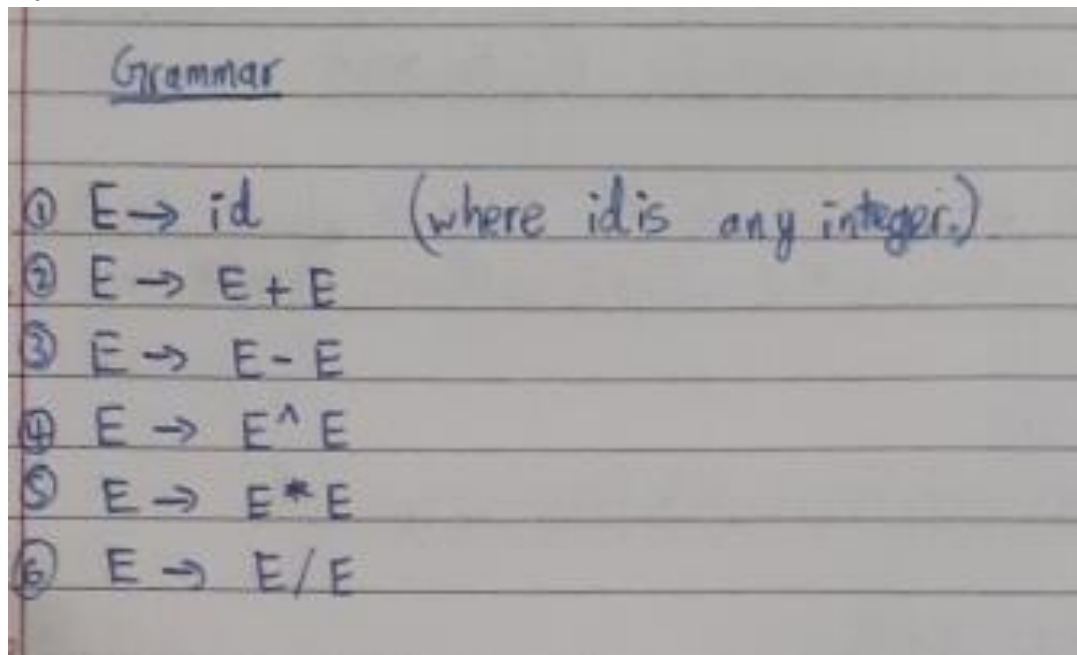 Grammar
① E → id (where id is any integer.)
② E → E + E
③ E → E - E
④ E → E ^ E
⑤ E → E * E
⑥ E → E / E